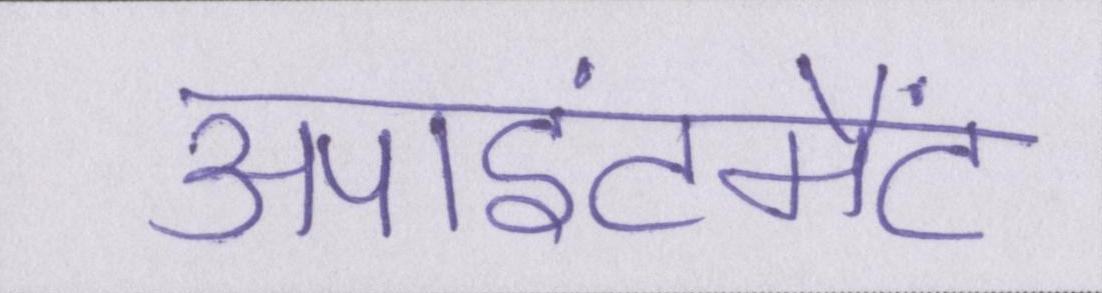 अपाइंटमैंट